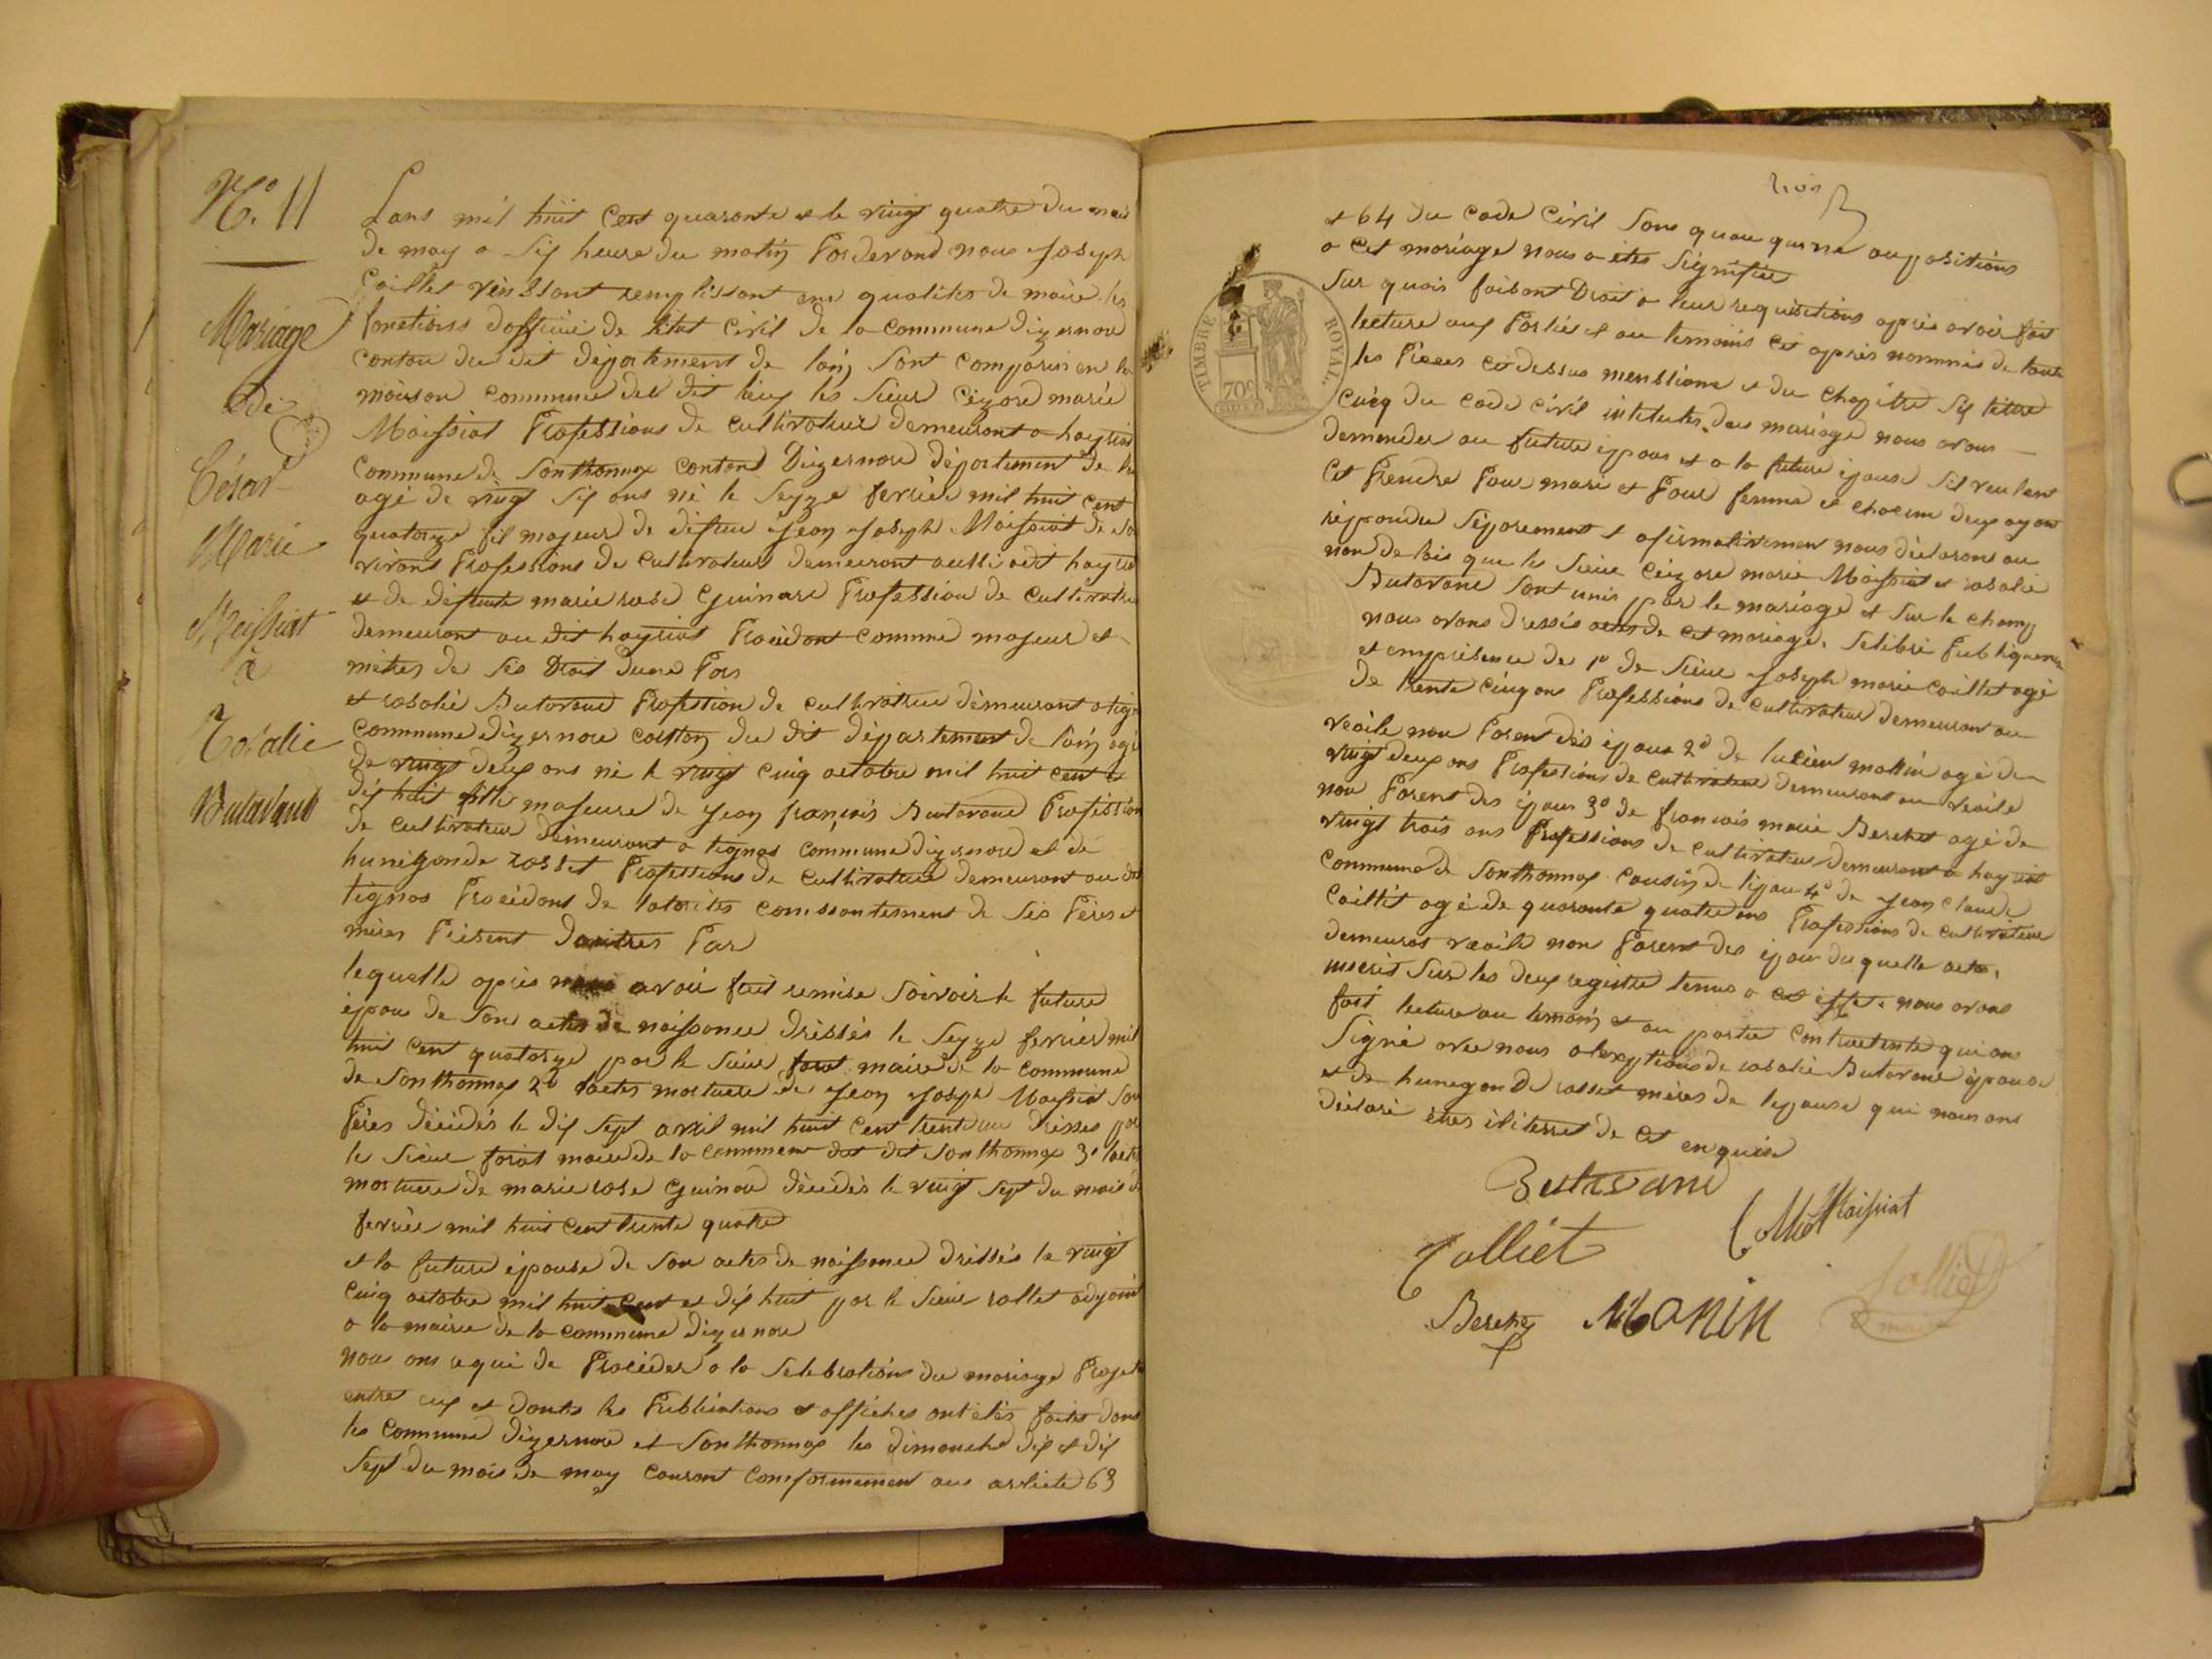 N.º 11
Mariage
de
César
Marie
Moissiat
à
Rosalie
Butavand
Lans mil huit Cent quaronte et le vingt quatre du mois
de may a Six heure du matin Pardevand nous Joseph
Coillet remplissant en qualités de maire les
fonctions dofficier de létat Civil de la Commune dizernore
conton du dit département de lain Sont comparus en la
maison commune du dit lieu les Sieur Cézore marie
Moissiat Professions de Cultivateur demeurant a hayriat
Commune de Sonthonnax contont Dizernore département de
agé de vingt Six ans né le Seyze fevrier mil huit cent
quatorze fil majeur de défeue Jean Joseph Moissiat de
vivont Professions de Cultivateur demeurant aussi audit hayriat
et de défunte marie rose Guinard Profession de Cultivatrice
demeurant au dit hayriat Procédont comme majeur et
mètres de Ses Droit dune Pars
et rosalie Butavand Profession de cultivatrice démeurant a tign
Commune dizernore conton du dit département de lain agé
de vingt deux ans né le vingt cinq octobre mil huit cent
dix huit fille majeure de Jean françois Butavand Profession
de Cultivateur demeurant a tignas Commune dizernore et de
hunégonde rosset Professions de Cultivatrice demeurant au dit
tignas Procédont de consontement de Ses Pères et
mères Présent dautres Pars
lequelle après avoir fait remise Savoir le future
époux de Son actes de naissonce dressés le Seyze fevrier mil
huit cent quatorze par le Sieur forat maire de la Commune
de Sonthonnax 2º lactes mortuere de Jean Joseph Moissiat Son
Pères décédés le dix Sept avril mil huit Cent trente un dressés par
le Sieur forat maire de la Commune du dit Sonthonnax 3º lactes
mortuere de marie rose Guinard décédés le vingt Sept du mois de
fevrier mil huit cent trente quatre
et la future épouse de Son actes de naissonce dressés le vingt
Cinq octobre mil huit cent et dix huit par le Sieur rollet adjoint
a la mairie de la commune dizernore
nous ons requi de Procéder a la Selebration du mariage Projeté
entre eux et donts les Publications et affiches ont étés faites dans
les Commune dizernore et Sonthonnax les dimanche dix et dix
Sept du mois de may Couront Conformement aux article 63
trois
et 64 du code Civil Sans quau qune auppositions
a cet mariage nous a étés Signifiée
Sur quois faisont Droit a leur requisitions après avoir fait
lecture aux Parties et au temoins cit après nommés de toute
les Pièces cit dessus menstione et du Chapitre Six titre
Cinq du code civil intitulés, du mariage nous avons
demender au future époux et a la future épouse Sil veulent
Cet Prendre Pour mari et Pour femme et chacun deux ayon
réponder Séporement et afirmativement nous déclarons au
non de lois que le Sieur Cézore marie Moissiat et rosalie
Butavand Sont unis par le mariage et Sur le champ
nous avons dressés actes de cet mariage. Selibré Publiquement
et emprésence de 1º de Sieur Joseph marie Coillet agé
de trente Cinq ans Professions de Cultivateur demeurant au
Voeile non Parent des époux 2º de lucien mattin agé de
vingt deux ans Professions de Cultivateur demeurant au Voeile
non Parent des époux 3º de françois marie Berchet agé de
vingt trois ans Professions de Cultivateur demeurant a hayriat
Commune de Sonthonnax Cousin de lépoux 4º de Jean Claude
Coillet agé de quaronte quatre ans Professions de Cultivateur
demeurot Voeile non Parent des époux duquelle acte,
inscrit Sur les deux registre tenus a cet effet. nous avons
fait lecture au temoins et au partie Contractente qui ons
Signé avec nous a lexeptions de rosalie Butavand épouse
et de hunegonde rosset mères de lépouse qui nous ons
déclaré êtres ilitterret de cet enquis
Butavand
Colliet
C M Moissiat
Berchez
MoNiN
Colliet
maire
TIMBRE ROYAL.
70c